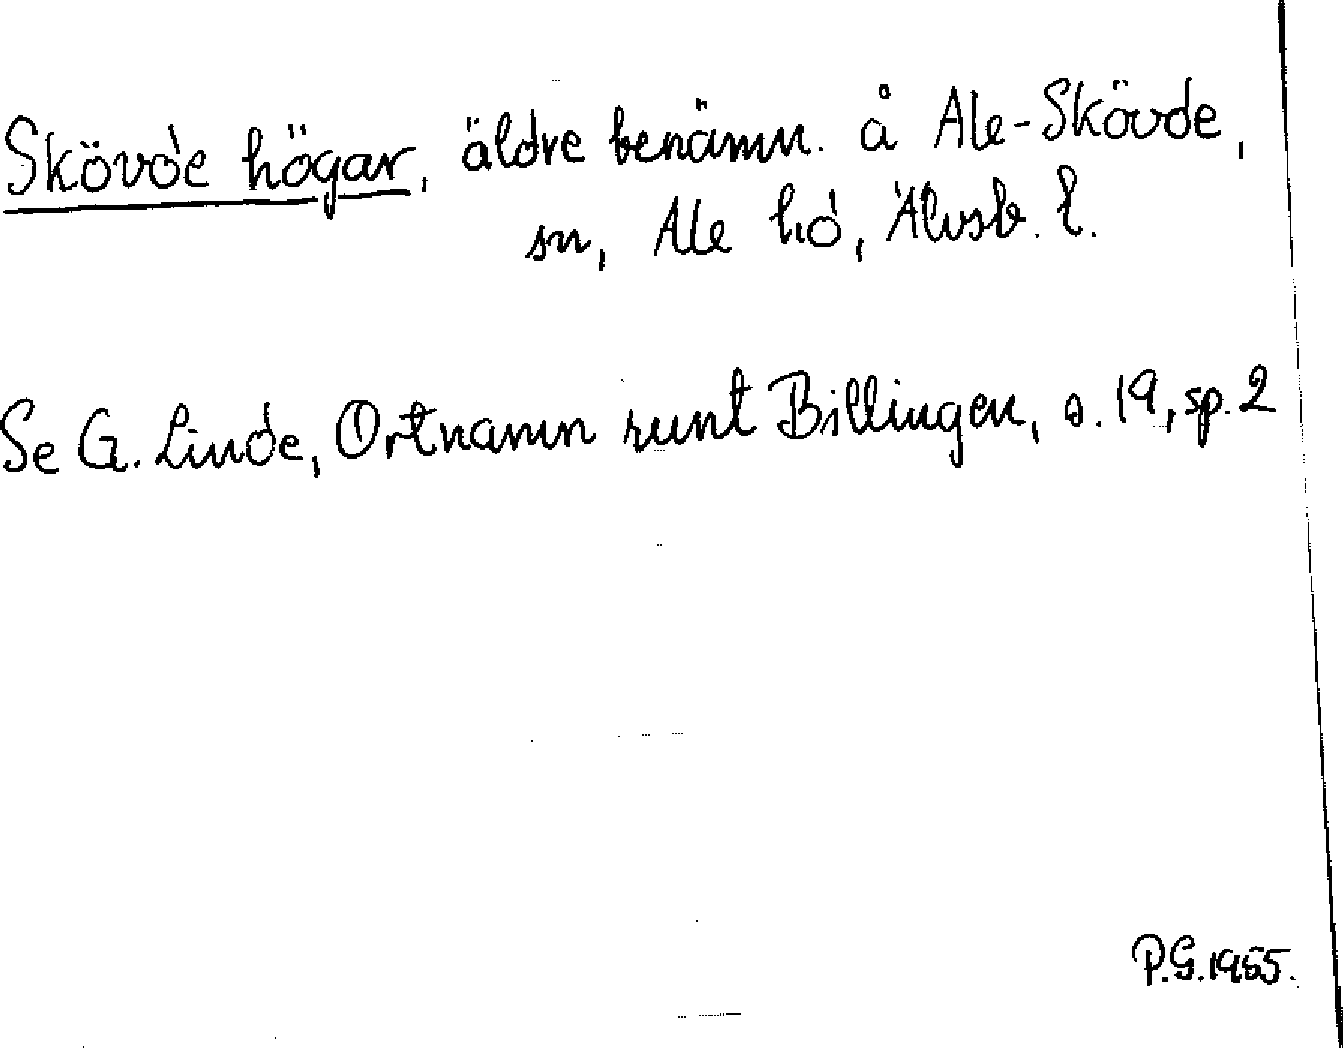 Skövde högar, äldre benämn. å Ale-Skövde,
sn, Ale hd, Älvsb. l.
Se G. Linde, Ortnamn runt Billingen, s. 19, sp. 2
P.G. 1955.